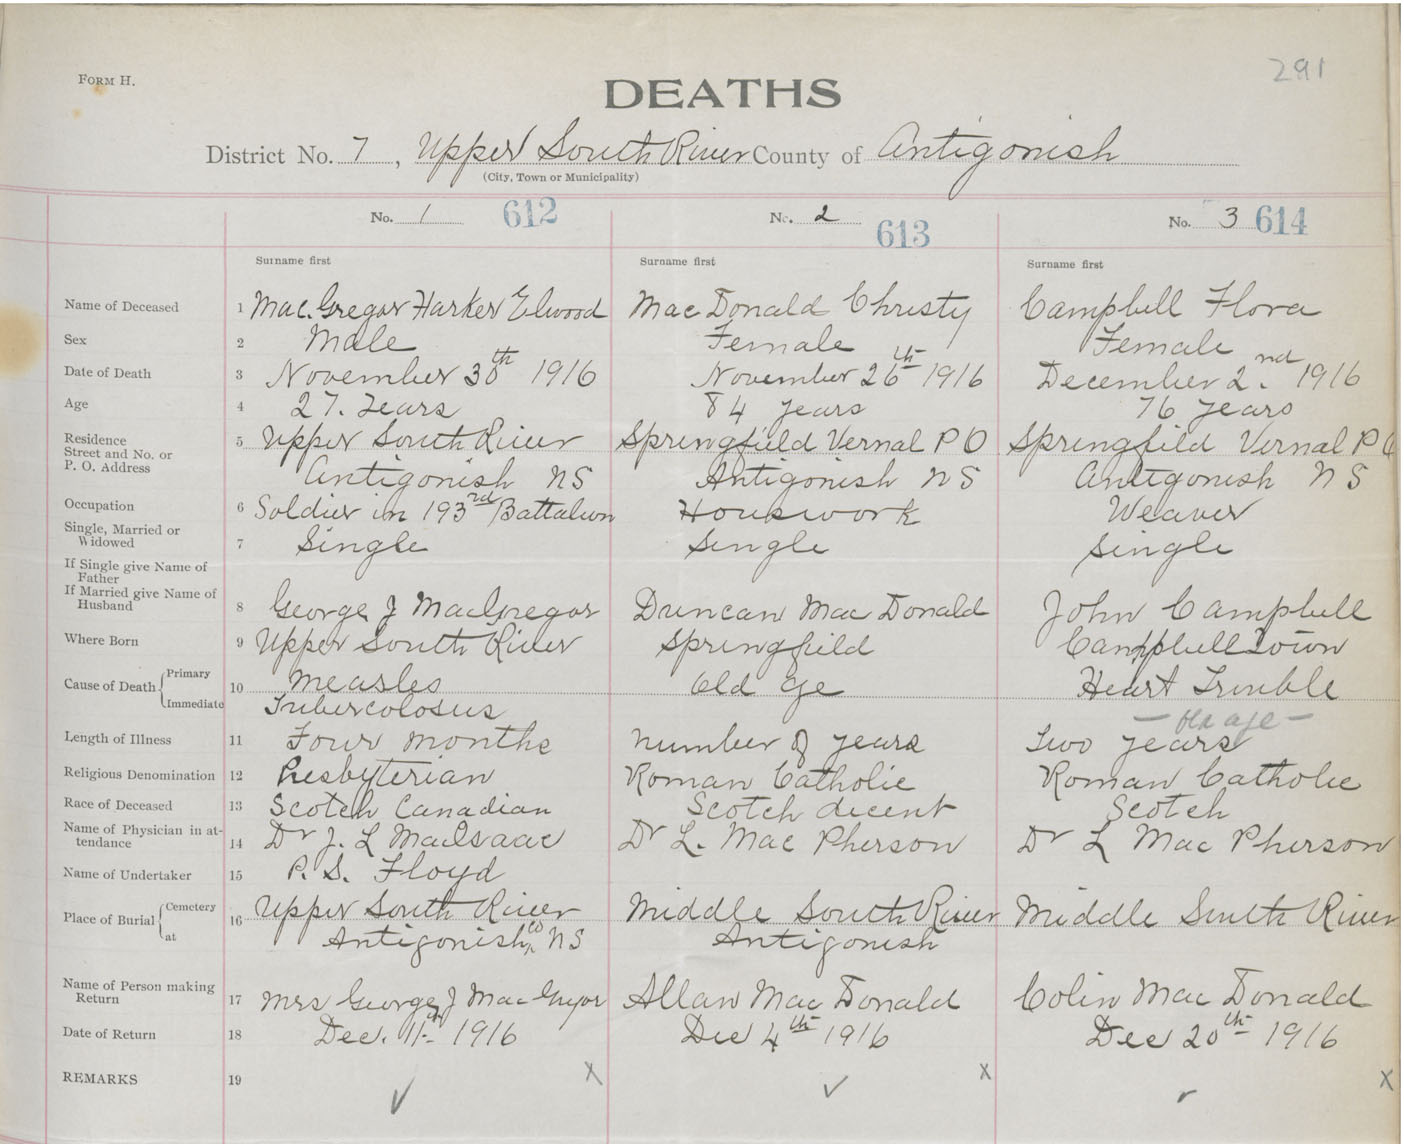 291
Form H.
DEATHS
District No. 7, Upper South River County of Antigonish
(City, Town or Municipality)
No. 1 612 No. 2 613 No. 3 614
Surname first Surname first Surname first
Name of Deceased 1 MacGregor Harker Elwood MacDonald Christy Campbell Flora
Sex 2 Male Female Female
Date of Death 3 November 30th 1916 November 26th 1916 December 2nd 1916
Age 4 27. Years 84 years 76 years
Residence Street and No. or P. O. Address 5 Upper South River Springfield Vernal P O Springfild Vernal P O
Antigonish NS Antigonish NS Antigonish NS
Occupation 6 Soldier in 193rd Battalion Houswork Weaver
Single, Married or Widowed 7 Single Single Single
If Single give Name of Father
If Married give Name of Husband 8 George J MacGregor Duncan MacDonald John Campbell
Where Born 9 Upper South River Springfield Campbell Town
Cause of Death Primary 10 Measles Old age Heart Trouble
Immediate Tubercolosus - old age -
Length of Illness 11 Four months number of years Two years
Religious Denomination 12 Presbyterian Roman Catholic Roman Catholic
Race of Deceased 13 Scotch Canadian Scotch decent Scotch
Name of Physician in attendance 14 Dr J. L MacIsaac Dr L. MacPherson Dr L MacPherson
Name of Undertaker 15 P. S. Floyd
Place of Burial Cemetery 16 Upper South River Middle South River Middle South River
at Antigonish Co NS Antigonish
Name of Person making Return 17 Mrs George J MacGregor Allan MacDonald Colin MacDonald
Date of Return 18 Dec. 11th 1916 Dec 4th 1916 Dec 20th 1916
REMARKS 19 x x x